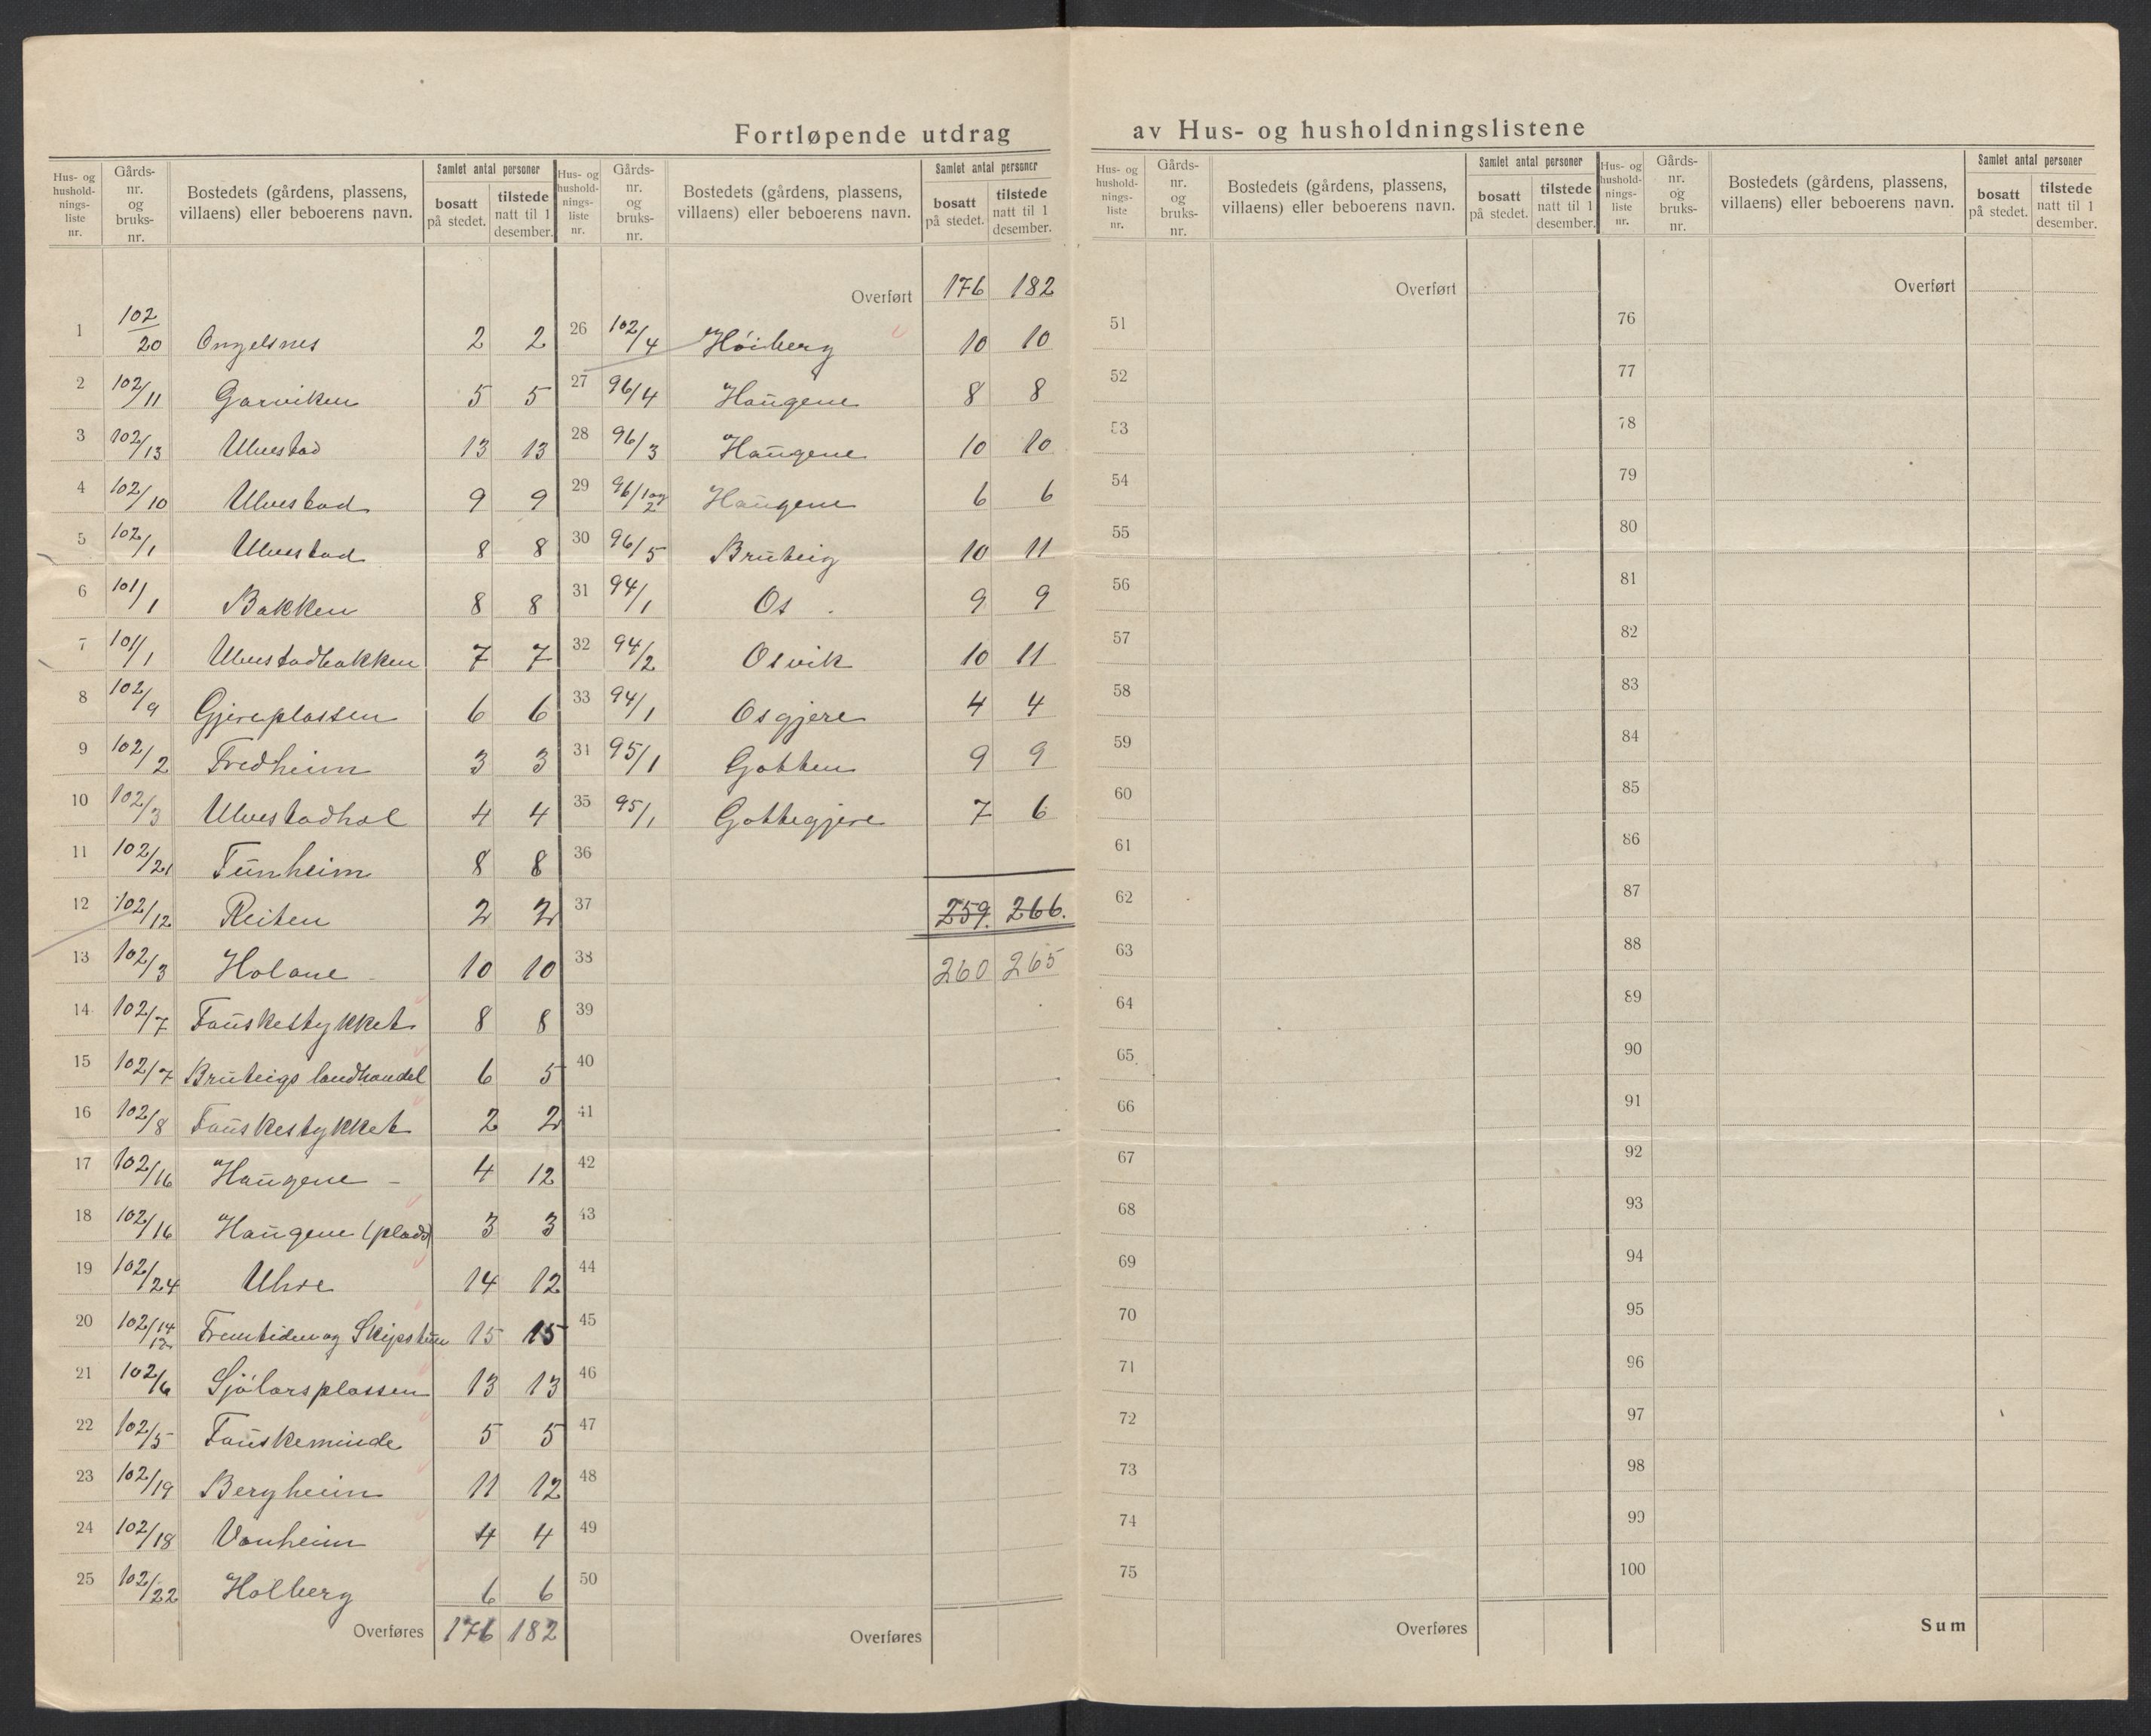 Fortløpende utdrag av Hus- og husholdningslistene
Hus- og hushold- nings- liste nr. | Gårds- nr. og bruks- nr. | Bostedets (gårdens, plassens, villaens) eller beboerens navn. | Samlet antal personer | bosatt på stedet. | tilstede natt til 1 desember.
1 102/20 Ongelsnes 2 2
2 102/11 Garviken 5 5
3 102/13 Ulvestad 13 13
4 102/10 Ulvestad 9 9
5 102/1 Ulvestad 8 8
6 101/1 Bakken 8 8
7 101/1 Ulvestadbakken 7 7
8 102/9 Gjereplassen 6 6
9 102/2 Fredheim 3 3
10 102/3 Ulvestadhol 4 4
11 102/21 Tunheim 8 8
12 102/12 Reiten 2 2
13 102/3 Holane 10 10
14 102/7 Fauskestykket 8 8
15 102/7 Bruteigs landhandel 6 5
16 102/8 Fauskestykket 2 2
17 102/16 Haugene 4 12
18 102/16 Haugene (plads) 3 3
19 102/24 Uhre 14 12
20 102/14 12 Fremtiden og Skipstun 15 15
21 102/6 Sjölarsplassen 13 13
22 102/5 Fauskeminde 5 5
23 102/19 Bergheim 11 12
24 102/18 Vonheim 4 4
25 102/22 Holberg 6 6
Overføres 176 182
Hus- og hushold- nings- liste nr. | Gårds- nr. og bruks- nr. | Bostedets (gårdens, plassens, villaens) eller beboerens navn. | Samlet antal personer | bosatt på stedet. | tilstede natt til 1 desember.
Overført 176 182
26 102/4 Höiberg 10 10
27 96/4 Haugene 8 8
28 96/3 Haugene 10 10
29 96/1 og 2 Haugene 6 6
30 96/5 Bruteig 10 11
31 94/1 Os 9 9
32 94/2 Osvik 10 11
33 94/1 Osgjere 4 4
34 95/1 Gotten 9 9
35 95/1 Gottegjere 7 6
36
37 259. 266.
38 260 265
39
40
41
42
43
44
45
46
47
48
49
50
Overføres
Hus- og hushold- nings- liste nr. | Gårds- nr. og bruks- nr. | Bostedets (gårdens, plassens, villaens) eller beboerens navn. | Samlet antal personer | bosatt på stedet. | tilstede natt til 1 desember.
Overført
51
52
53
54
55
56
57
58
59
60
61
62
63
64
65
66
67
68
69
70
71
72
73
74
75
Overføres
Hus- og hushold- nings- liste nr. | Gårds- nr. og bruks- nr. | Bostedets (gårdens, plassens, villaens) eller beboerens navn. | Samlet antal personer | bosatt på stedet. | tilstede natt til 1 desember.
Overført
76
77
78
79
80
81
82
83
84
85
86
87
88
89
90
91
92
93
94
95
96
97
98
99
100
Sum